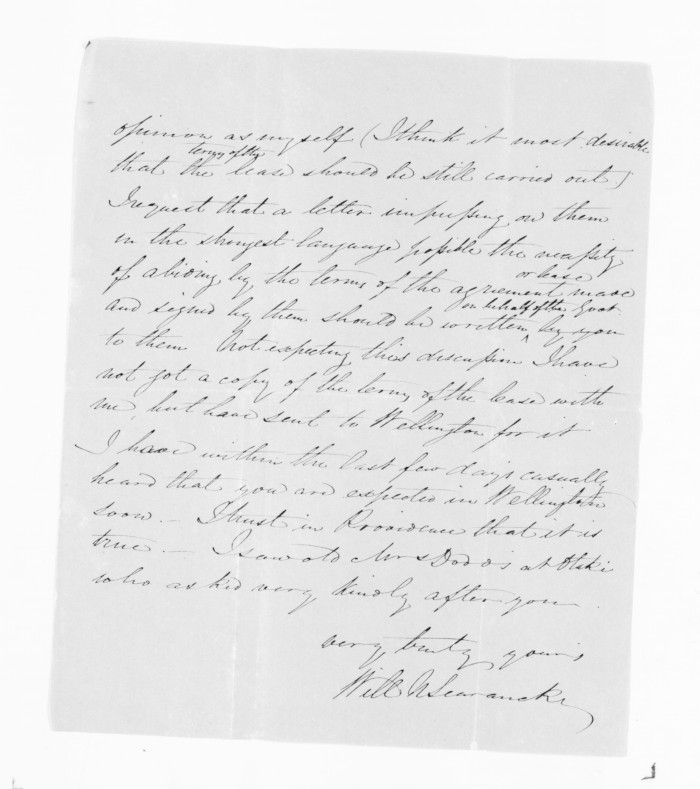 opinion as myself (I think it most desirable
terms of the
that the lease should be still carried out)
I request that a letter impressing on them
in the strongest language possible the necessity
or lease
of abiding by the terms of the agreement made
on behalf of the Govt
and signed by them should be written by you
to them Not expecting this discussion I have
not got a copy of the terms of the lease with
me, but have sent to Wellington for it
I have within the last few days casually
heard that you are expected in Wellington
soon. — I trust in Providence that it is
true. — I saw old Mrs Dodds at Otaki
who asked very kindly after you.
very truly yours
Will N Searancke